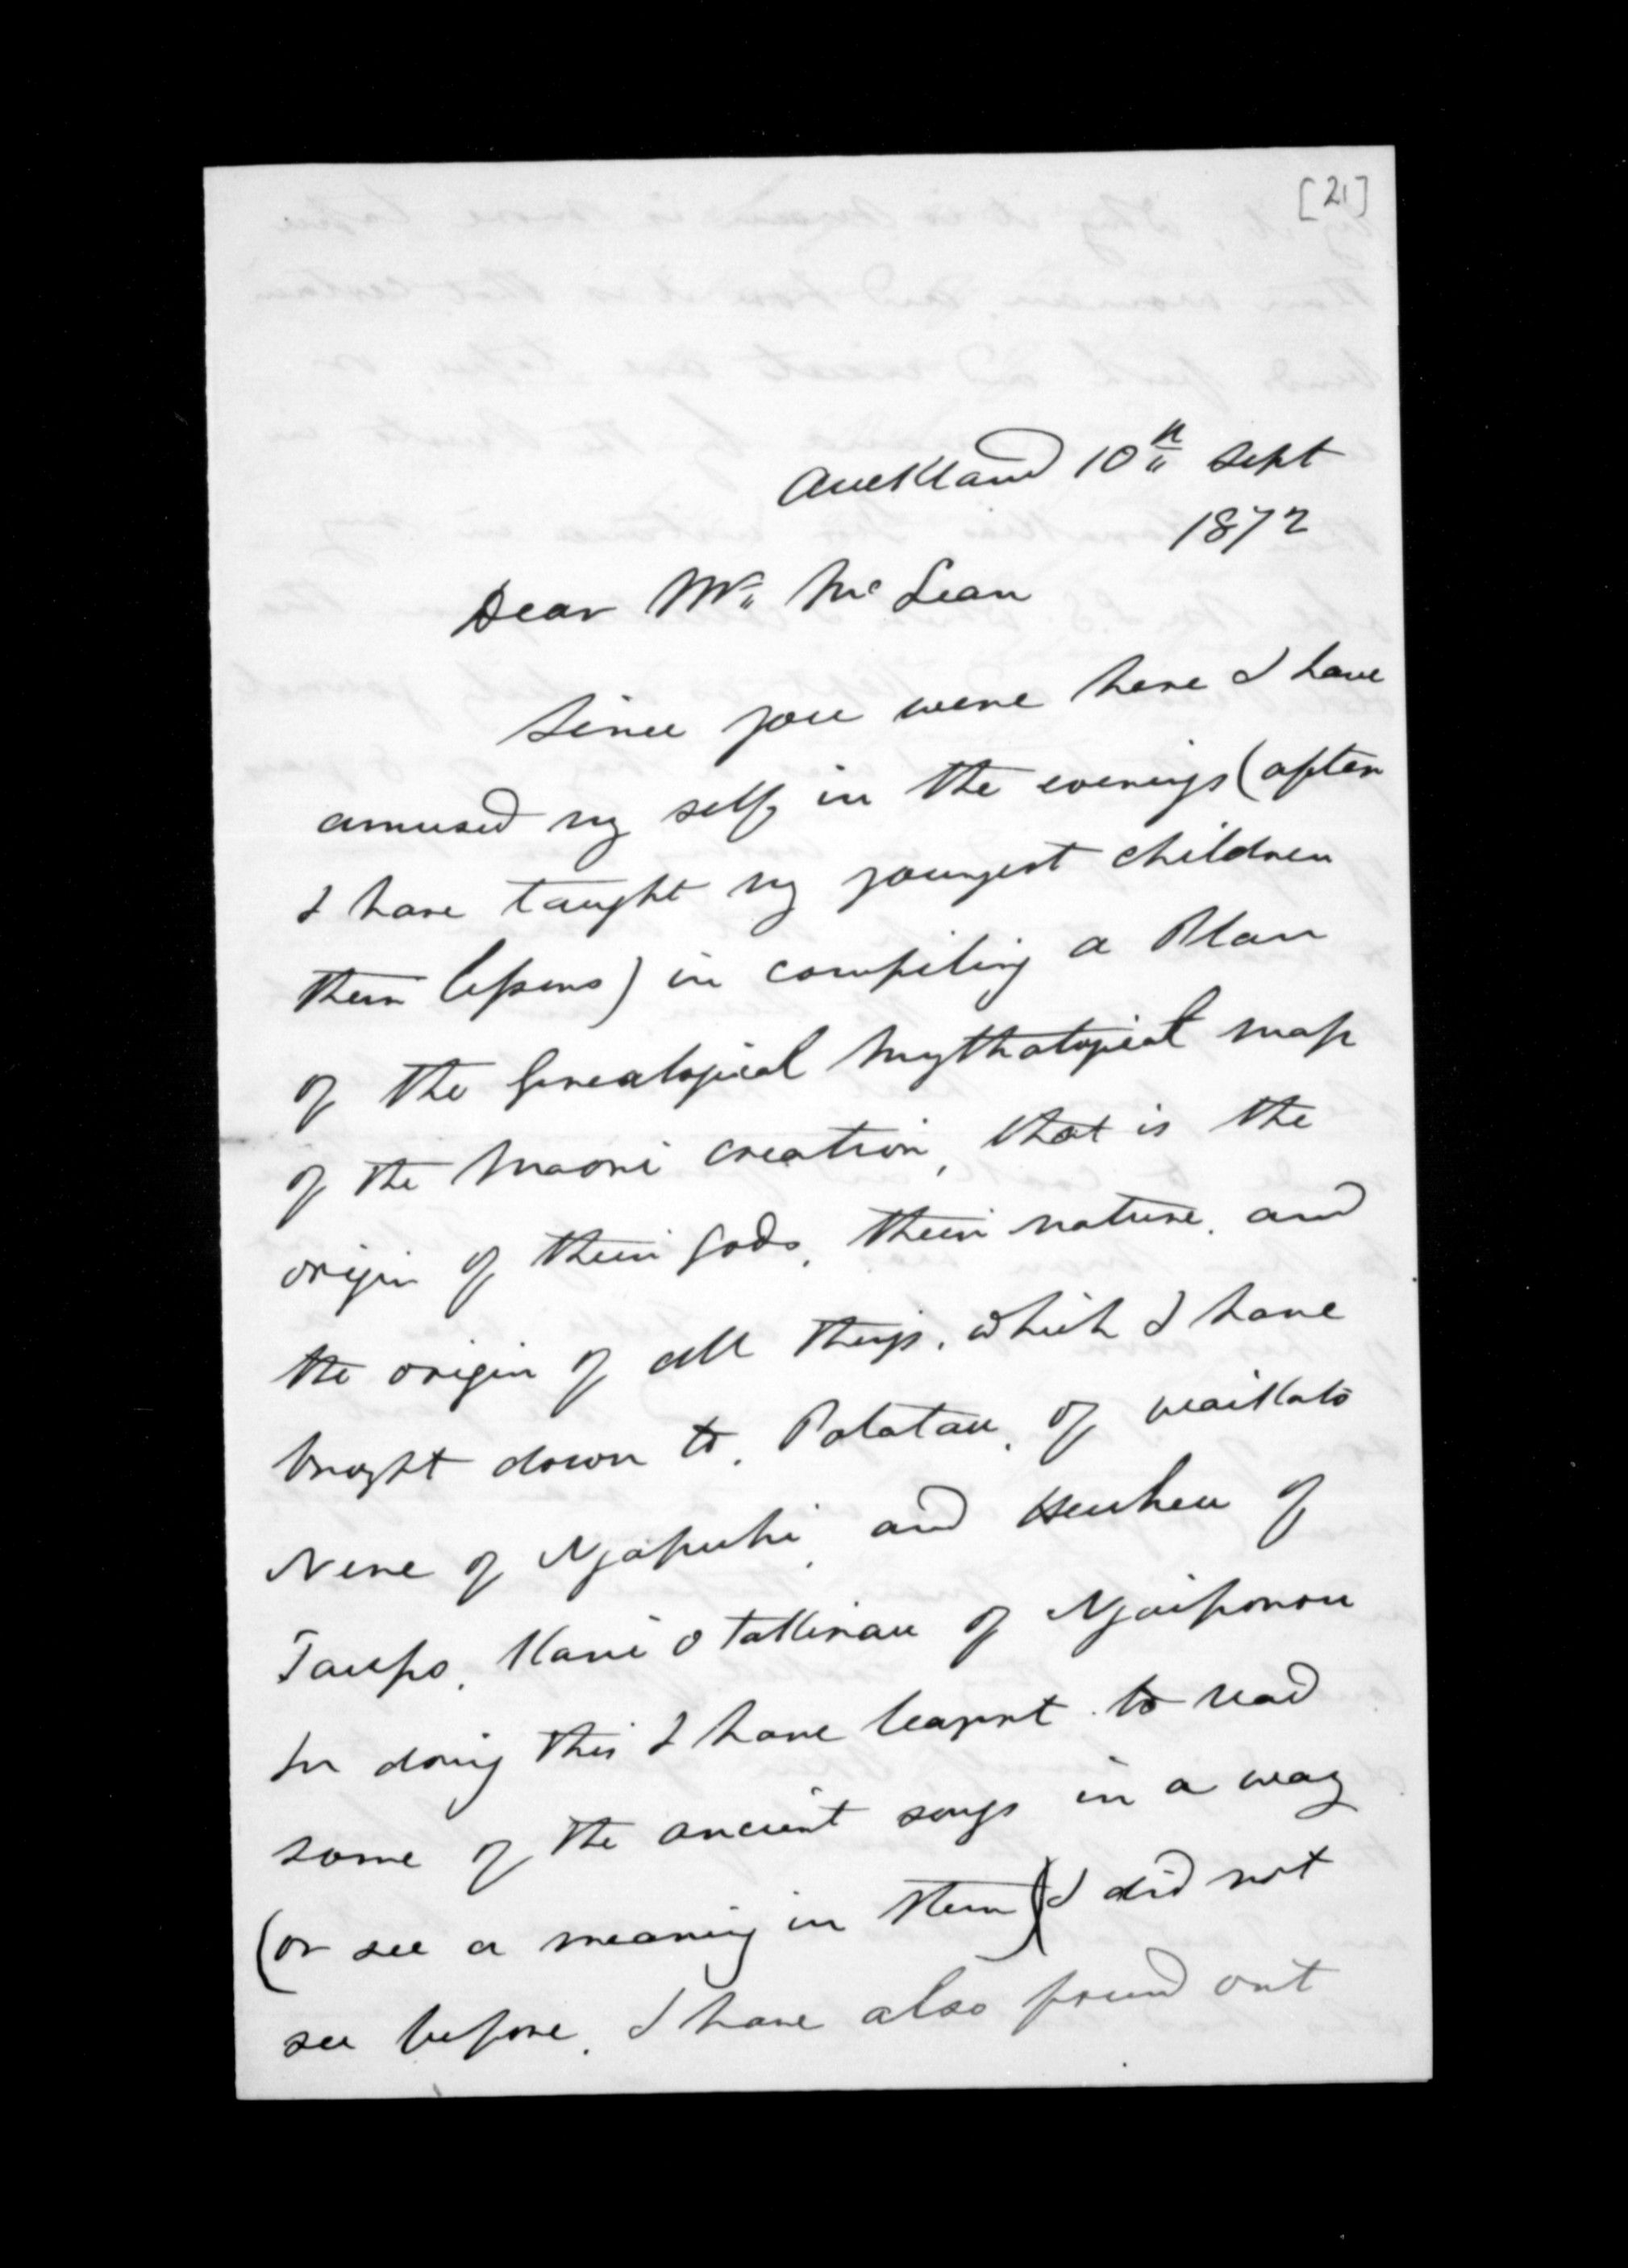 [21]
Auckland 10th Sept
1872
Dear Mr. McLean
Since you were here I have
amused my self in the evenings (after
I have taught my youngest children
their lessons) in compiling a Plan
of the Genealogical Mythological map
of the Maori creation, that is the
origin of their Gods, their nature, and
the origin of all things, which I have
brought down to, Potatau, of Waikato
Nene of Ngapuhi, and Heuheu of
Taupo, Kani o Takirau of Ngaiporou
In doing this I have learnt to read
some of the ancient songs in a way
(or see a meaning in them) I did not
see before. I have also found out